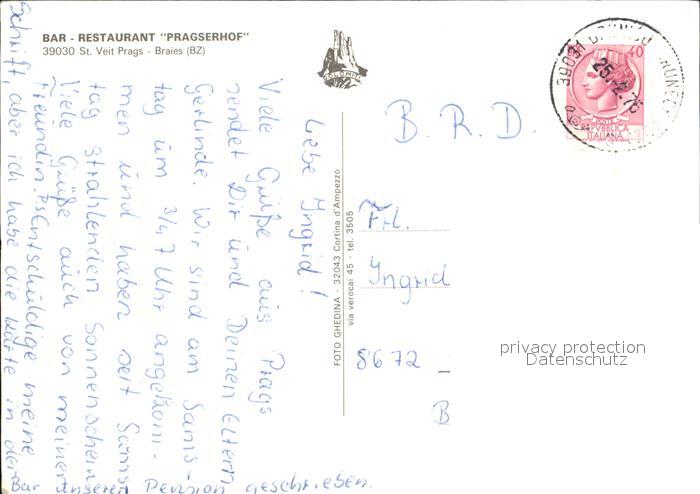 BAR - RESTAURANT "PRAGSERHOF"
39030 St. Veit Prags - Braies (BZ)
DOLOMITI
Liebe Ingrid!
Viele Grüße aus Prags
sendet Dir und Deinen Eltern
Gerlinde. Wir sind am Sams-
tag um 3/4 7 Uhr angekom-
men und haben seit Sams-
tag strahlenden Sonnenschein
Viele Grüße auch von meiner
Freundin. PS Entschuldige meine
Schrift, aber ich habe die Karte in der
Bar unserer Pension geschrieben.
FOTO GHEDINA - 32043 Cortina d'Ampezzo
via verocai 45 - tel. 3505
40
POSTE
REPVBBLICA
ITALIANA
39031
25.2.75
B. R. D.
Frl.
Ingrid
8672
B
privacy protection
Datenschutz